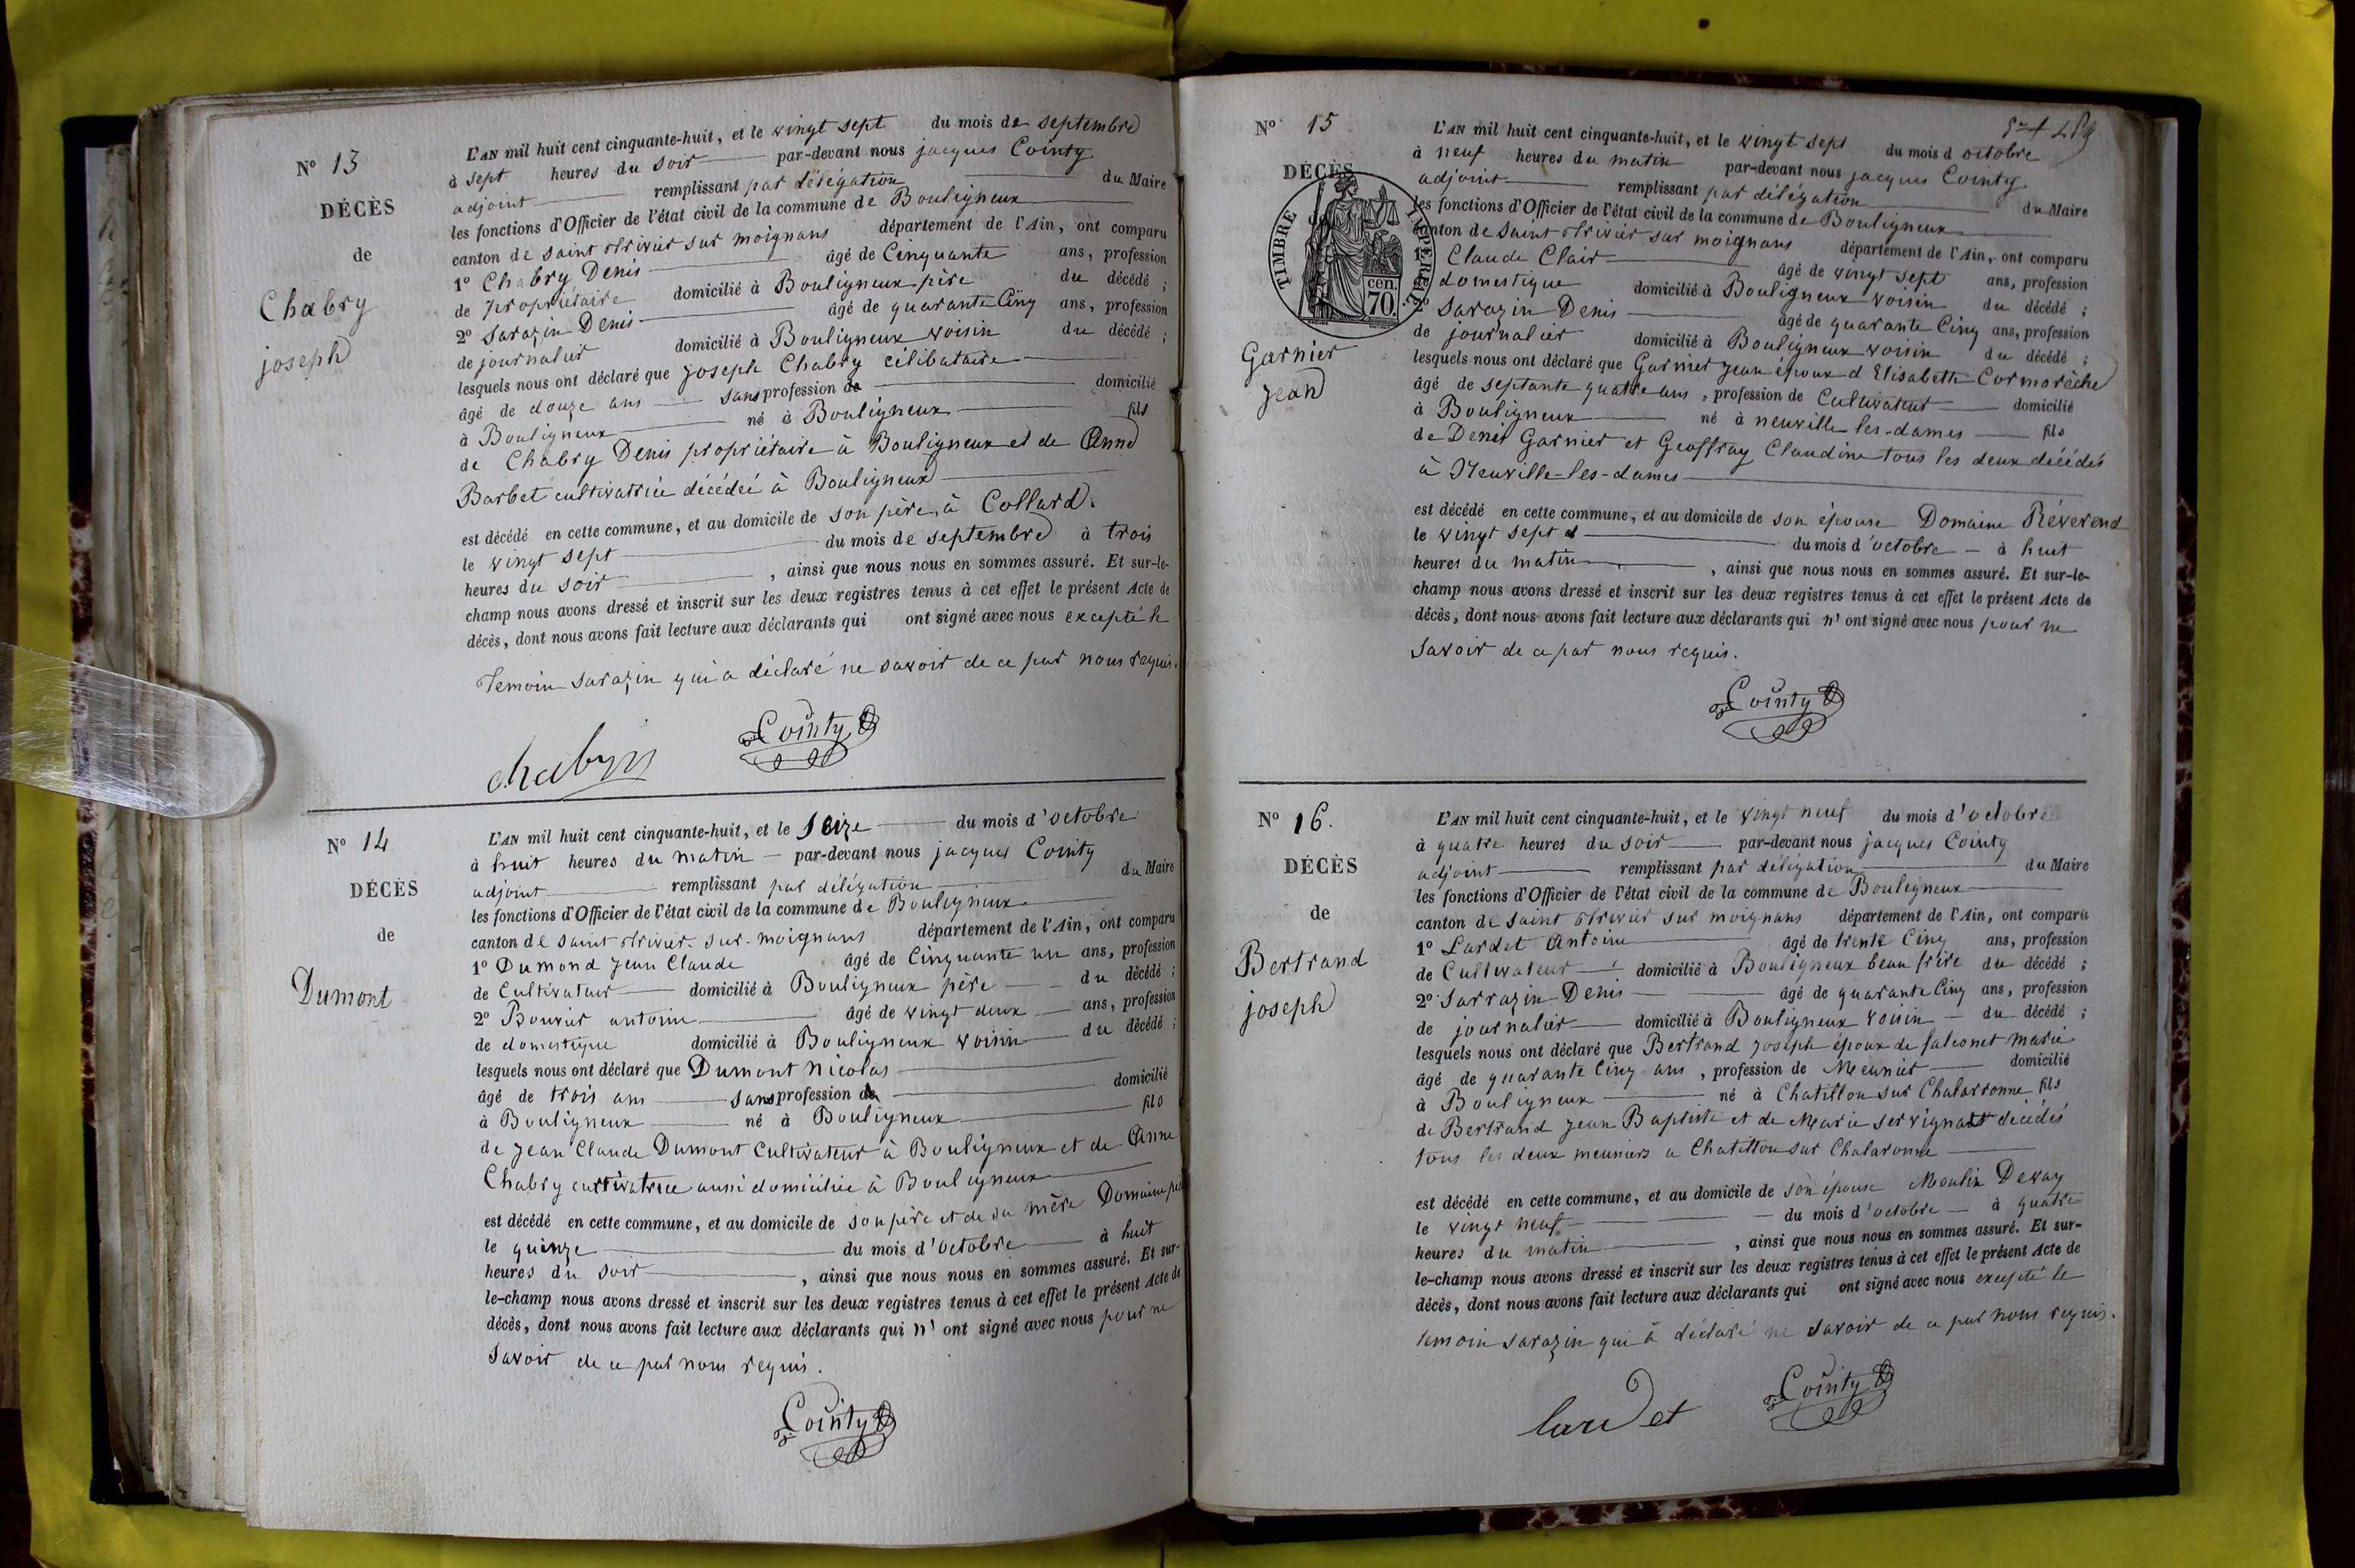 N° 13
DÉCÈS
de
Chabry
joseph
L'AN mil huit cent cinquante-huit, et le vingt sept du mois de septembre
à sept heures du soir par-devant nous jacques Cointy
adjoint remplissant par délégation du Maire
les fonctions d'Officier de l'état civil de la commune de Bouligneux
canton de saint trivier sur moignans département de l'Ain, ont comparu
1° Chabry Denis âgé de Cinquante ans, profession
de propriétaire domicilié à Bouligneux père du décédé ;
2° Sarazin Denis âgé de quarante Cinq ans, profession
de journalier domicilié à Bouligneux voisin du décédé ;
lesquels nous ont déclaré que joseph Chabry célibataire
âgé de douze ans sans profession de domicilié
à Bouligneux né à Bouligneux fils
de Chabry Denis propriétaire à Bouligneux et de Anne
Barbet cultivatrice décédée à Bouligneux
est décédé en cette commune, et au domicile de son père, à Collard.
le vingt sept du mois de septembre à trois
heures du soir , ainsi que nous nous en sommes assuré. Et sur-le-
champ nous avons dressé et inscrit sur les deux registres tenus à cet effet le présent Acte de
décès, dont nous avons fait lecture aux déclarants qui ont signé avec nous excepté le
Temoin sarazin qui a déclaré ne savoir de ce par nous requis.
chabry
Cointy
N° 14
DÉCÈS
de
Dumont
L'AN mil huit cent cinquante-huit, et le Seize du mois d'octobre
à huit heures du matin par-devant nous jacques Cointy
adjoint remplissant par délégation du Maire
les fonctions d'Officier de l'état civil de la commune de Bouligneux
canton de saint trivier-sur-moignans département de l'Ain, ont comparu
1° Dumond Jean Claude âgé de Cinquante un ans, profession
de Cultivateur domicilié à Bouligneux père du décédé ;
2° Bouvier antoine âgé de vingt deux ans, profession
de domestique domicilié à Bouligneux voisin du décédé ;
lesquels nous ont déclaré que Dumont Nicolas
âgé de trois ans sans profession de domicilié
à Bouligneux né à Bouligneux fils
de Jean Claude Dumont Cultivateur à Bouligneux et de Anne
Chabry cultivatrice aussi domiciliée à Bouligneux
est décédé en cette commune, et au domicile de son père et de sa mère Domaine
le quinze du mois d'octobre à huit
heures du soir , ainsi que nous nous en sommes assuré. Et sur-
le-champ nous avons dressé et inscrit sur les deux registres tenus à cet effet le présent Acte de
décès, dont nous avons fait lecture aux déclarants qui n'ont signé avec nous pour ne
savoir de ce par nous requis.
Cointy
N° 15
DÉCÈS
TIMBRE IMPERIAL
cen.
70.
Garnier
Jean
L'AN mil huit cent cinquante-huit, et le vingt sept du mois d octobre
à neuf heures du matin par-devant nous jacques Cointy
adjoint remplissant par délégation du Maire
les fonctions d'Officier de l'état civil de la commune de Bouligneux
canton de saint trivier sur moignans département de l'Ain, ont comparu
1° Claude Clair âgé de vingt sept ans, profession
domestique domicilié à Bouligneux voisin du décédé ;
2° Sarazin Denis âgé de quarante Cinq ans, profession
de journalier domicilié à Bouligneux voisin du décédé ;
lesquels nous ont déclaré que Garnier Jean époux d Elisabeth Cormorèche
âgé de septante quatre ans, profession de Cultivateur domicilié
à Bouligneux né à neuville les-dames fils
de Denis Garnier et Geoffray Claudine tous les deux décédés
à Neuville-les-dames
est décédé en cette commune, et au domicile de son épouse Domaine Réverend
le vingt sept du mois d'octobre à huit
heures du matin , ainsi que nous nous en sommes assuré. Et sur-le-
champ nous avons dressé et inscrit sur les deux registres tenus à cet effet le présent Acte de
décès, dont nous avons fait lecture aux déclarants qui n'ont signé avec nous pour ne
savoir de ce par nous requis.
Cointy
N° 16.
DÉCÈS
de
Bertrand
joseph
L'AN mil huit cent cinquante-huit, et le vingt neuf du mois d'octobre
à quatre heures du soir par-devant nous jacques Cointy
adjoint remplissant par délégation du Maire
les fonctions d'Officier de l'état civil de la commune de Bouligneux
canton de saint trivier sur moignans département de l'Ain, ont comparu
1° Lardet Antoine âgé de trente Cinq ans, profession
de Cultivateur domicilié à Bouligneux beau frère du décédé ;
2° Sarrazin Denis âgé de quarante Cinq ans, profession
de journalier domicilié à Bouligneux voisin du décédé ;
lesquels nous ont déclaré que Bertrand joseph époux de falconet marie
âgé de quarante Cinq ans, profession de Meunier domicilié
à Bouligneux né à Chatillon sur Chalaronne fils
de Bertrand Jean Baptiste et de Marie décédés
tous les deux meuniers a Chatillon sur Chalaronne
est décédé en cette commune, et au domicile de son épouse Moulin Devay
le vingt neuf du mois d'octobre à quatre
heures du matin , ainsi que nous nous en sommes assuré. Et sur-
le-champ nous avons dressé et inscrit sur les deux registres tenus à cet effet le présent Acte de
décès, dont nous avons fait lecture aux déclarants qui ont signé avec nous excepté le
temoin sarazin qui à déclaré ne savoir de ce par nous requis.
lardet
Cointy